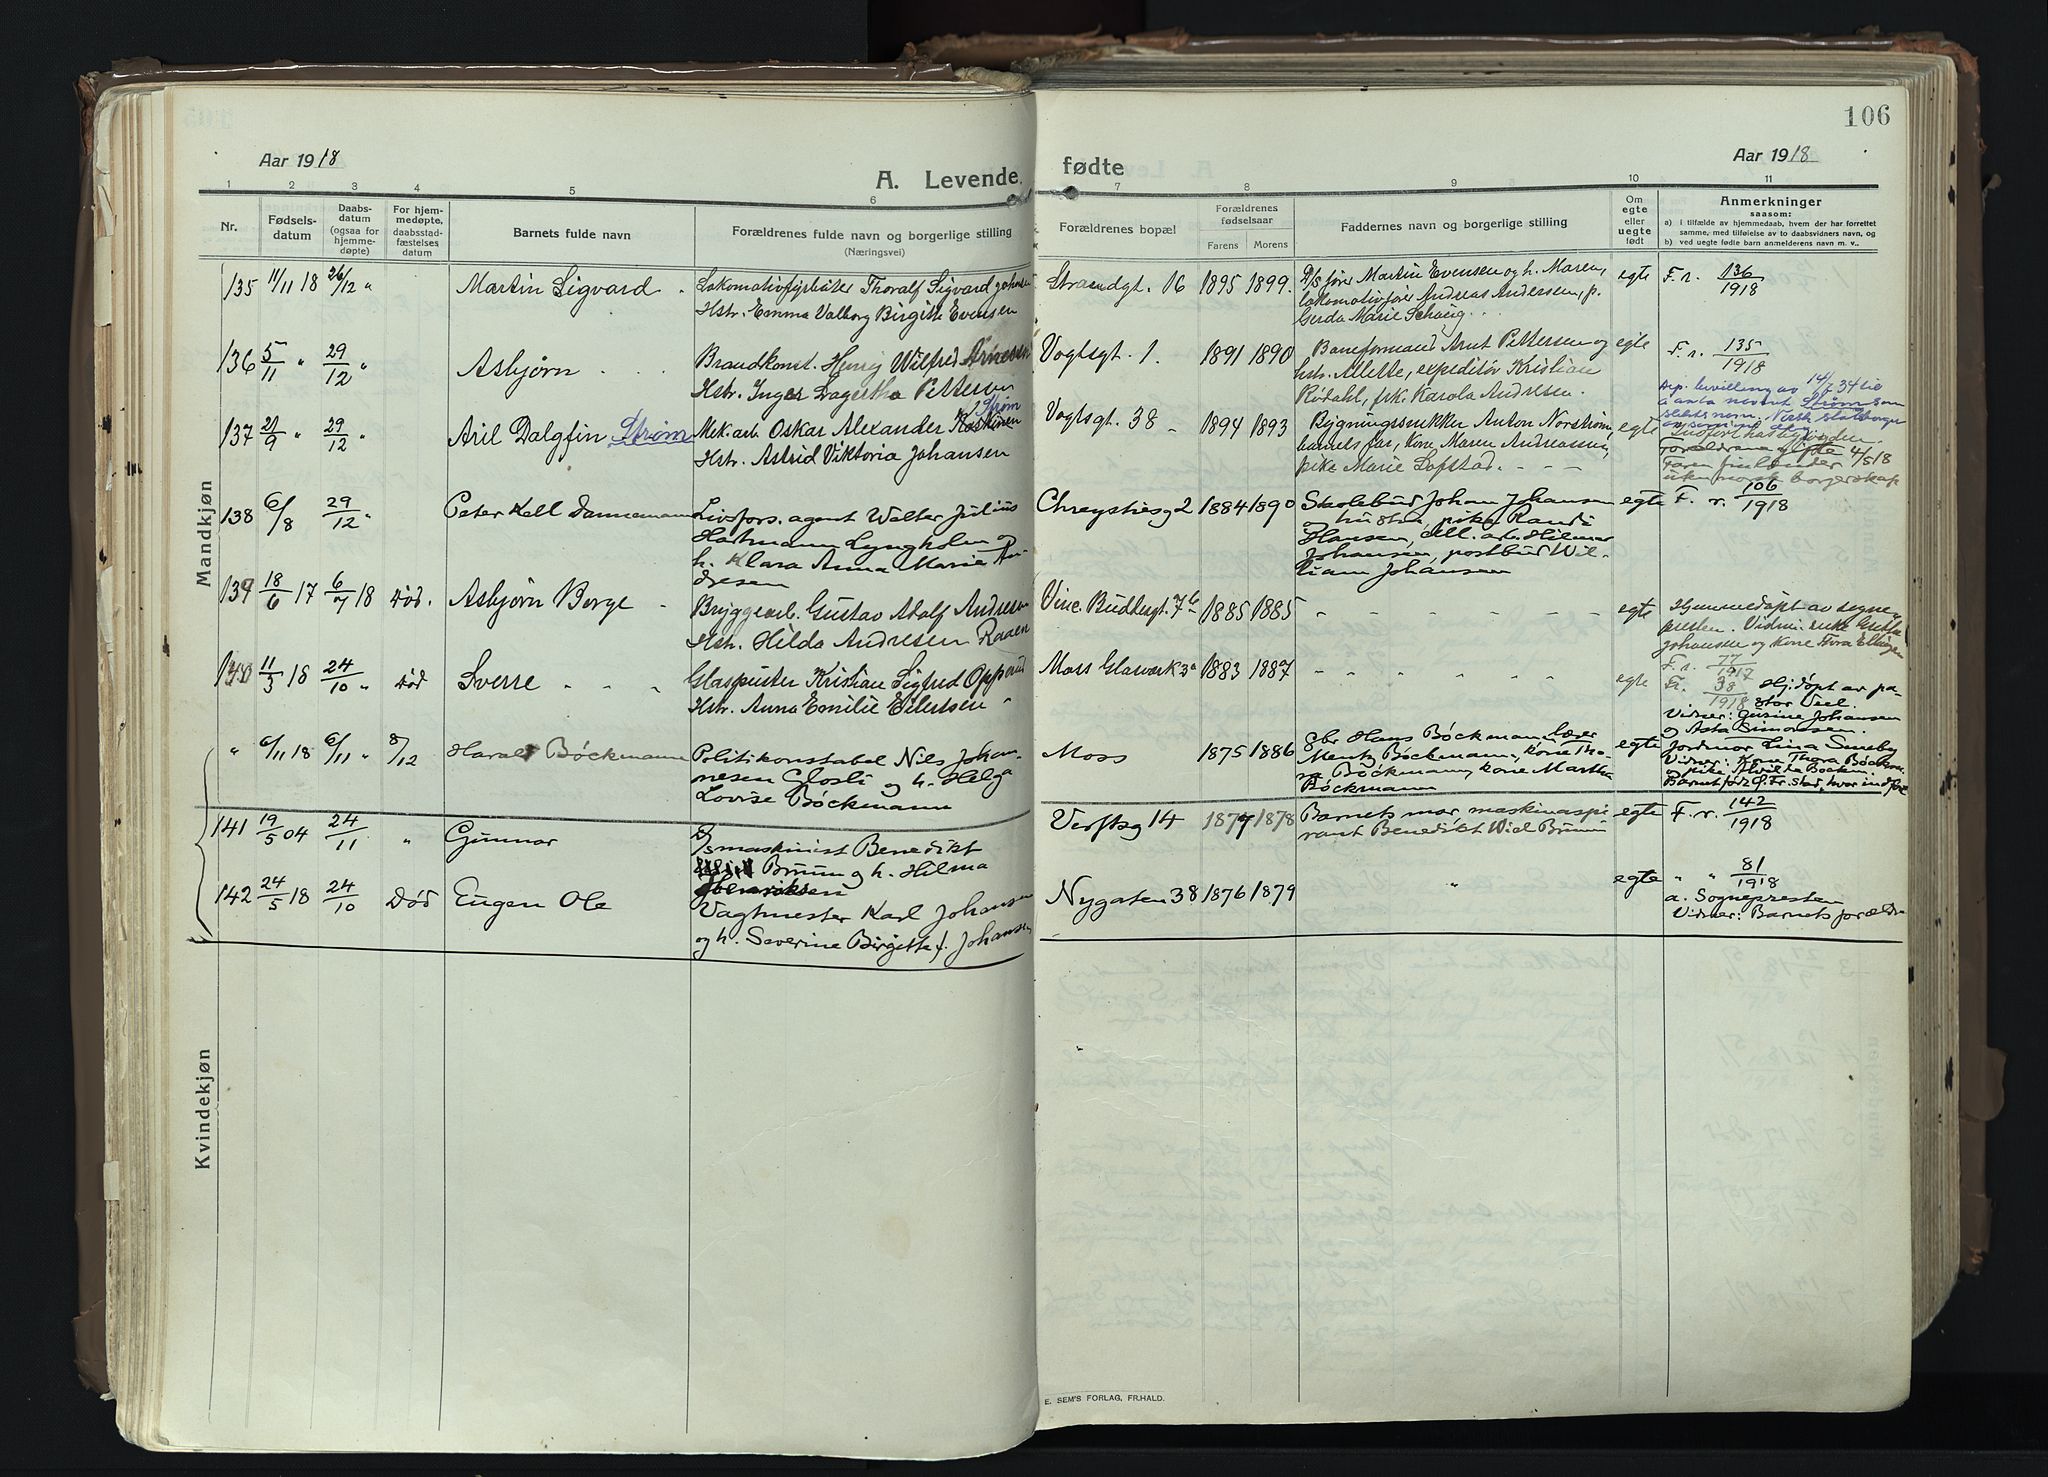 106
Aar 1918
A. Levende fødte
Aar 1918
1 2 3 4 5 6 7 8 9 10 11
Nr.
Fødsels-
datum
Daabs-
datum
(ogsaa for
hjemme-
døpte)
For hjem-
medøpte,
daabsstad-
fæstelses
datum
Barnets fulde navn
Forældrenes fulde navn og borgerlige stilling
(Næringsvei)
Forældrenes bopæl
Forældrenes
fødselsaar
Farens Morens
Faddernes navn og borgerlige stilling
Om
egte
eller
uegte
født
Anmerkninger
saasom:
a) i tilfælde av hjemmedaab, hvem der har forrettet
samme, med tilføielse av to daabsvidners navn, og
b) ved uegte fødte barn anmelderens navn m. v..
Mandkjøn
135 11/11 18 26/12 "
Martin Sigvard
Lokomotivfyrbøter Thoralf Sigvard Johansen
Hstr. Emma Valborg Birgitte Evensen
Strandgt. 16 1895 1899
D/S fører Martin Evensen og h. Maren,
lokomotivfører Andreas Andersen, p.
Gerda Marie Schaug
egte F. r. 136/1918
136 5/11 " 29/12 "
Asbjørn
Brandkonst. Henry Wilfred Arnesen
Hstr. Inger Dagertha Pettersen
Vogtsgt. 1. 1891 1890
Baneformand Arnt Pettersen og
hstr. Allette, expeditør Kristian
Rödahl, frk. Karola Andresen.
egte F. r. 135/1918
137 21/9 " 29/12 "
Aril Dalgfin Strøm
Mek. arb. Oskar Alexander Koskinen Strøm
Hstr. Astrid Viktoria Johansen
Vogtsgt. 38 1894 1893
Bygningssnekker Anton Norström,
barnets far, kone Maren Andreassen,
pike Marie Lofstad.
egte
bevilling av 14/7 34 til
å anta navnet Strøm som
slektsnavn. Norsk statsborger
Forældrene gifte 4/5 18
Faren finlænder
uten norsk borgerskap
138 6/8 29/12 "
Peter Kell Dannemann
Livsfors. agent Walter Julius
Hartmann Lyngholm og
h. Klara Anna Marie An-
dresen
Chrystiesg 2 1884 1890
Skolebud Johan Johansen
og hustru, pike Randi
Hansen, ell. arb. Hilmar
Johansen, postbud Wil-
liam Johansen
egte F. r. 106/1918
139 18/6 17 6/7 18 Død.
Asbjørn Borge
Bryggearb. Gustav Adolf Andresen
Hstr. Hilda Andresen Raaen
Vinc. Buddesgt. 7b 1885 1885
" " " " " "
egte
Hjemmedøpt av sogne-
presten. Vidner: enke
Johansen og kone Thora Ellingsen
F. r. 77/1917
140 11/3 18 24/10 " Død
Sverre " " "
Glaspuster Kristian Sigfred Opperud
Hstr. Anna Emilie Eilertsen
Moss Glasverk 3a 1883 1887
" " " " " "
egte
Fr. 38/1918 Hj.døpt av pa-
stor Veel.
Vidner: Gusine Johansen
og Asta Simonsen.
" 6/11 18 6/11 " 8/12
Harald Bøckmann
Politikonstabel Nils Johan-
nesen Gjosli og h. Helga
Lovise Bøckmann
Moss 1875 1886
gbr Hans Bøckmann, lærer
Mentz Bøckmann, kone Tho-
ra Bøckmann, kone Martha
Bøckmann
egte
Jordmor Lina Sundby
Vidner: Kone Thora Bøckm.
og pike Alvilde Bøckm.
Barnet født i Fr.stad, hvor indført
141 19/5 04 24/11 "
Gunnar
D/s maskinist Benedikt
Bruun og h. Hilma
Henriksen
Verftsg 14 1877 1878
Barnets mor, maskinaspi-
rant Benedikt Wiel Bruun
egte F. r. 142/1918
142 24/5 18 24/10 Død
Eugen Ole
Vagtmester Karl Johansen
og h. Severine Birgitte f. Johansen
Nygaten 38 1876 1879
"
egte " " 81/1918
a. Sognepresten
Vidner: Barnets forældre
Kvindekjøn
E. SEM'S FORLAG, FR.HALD.